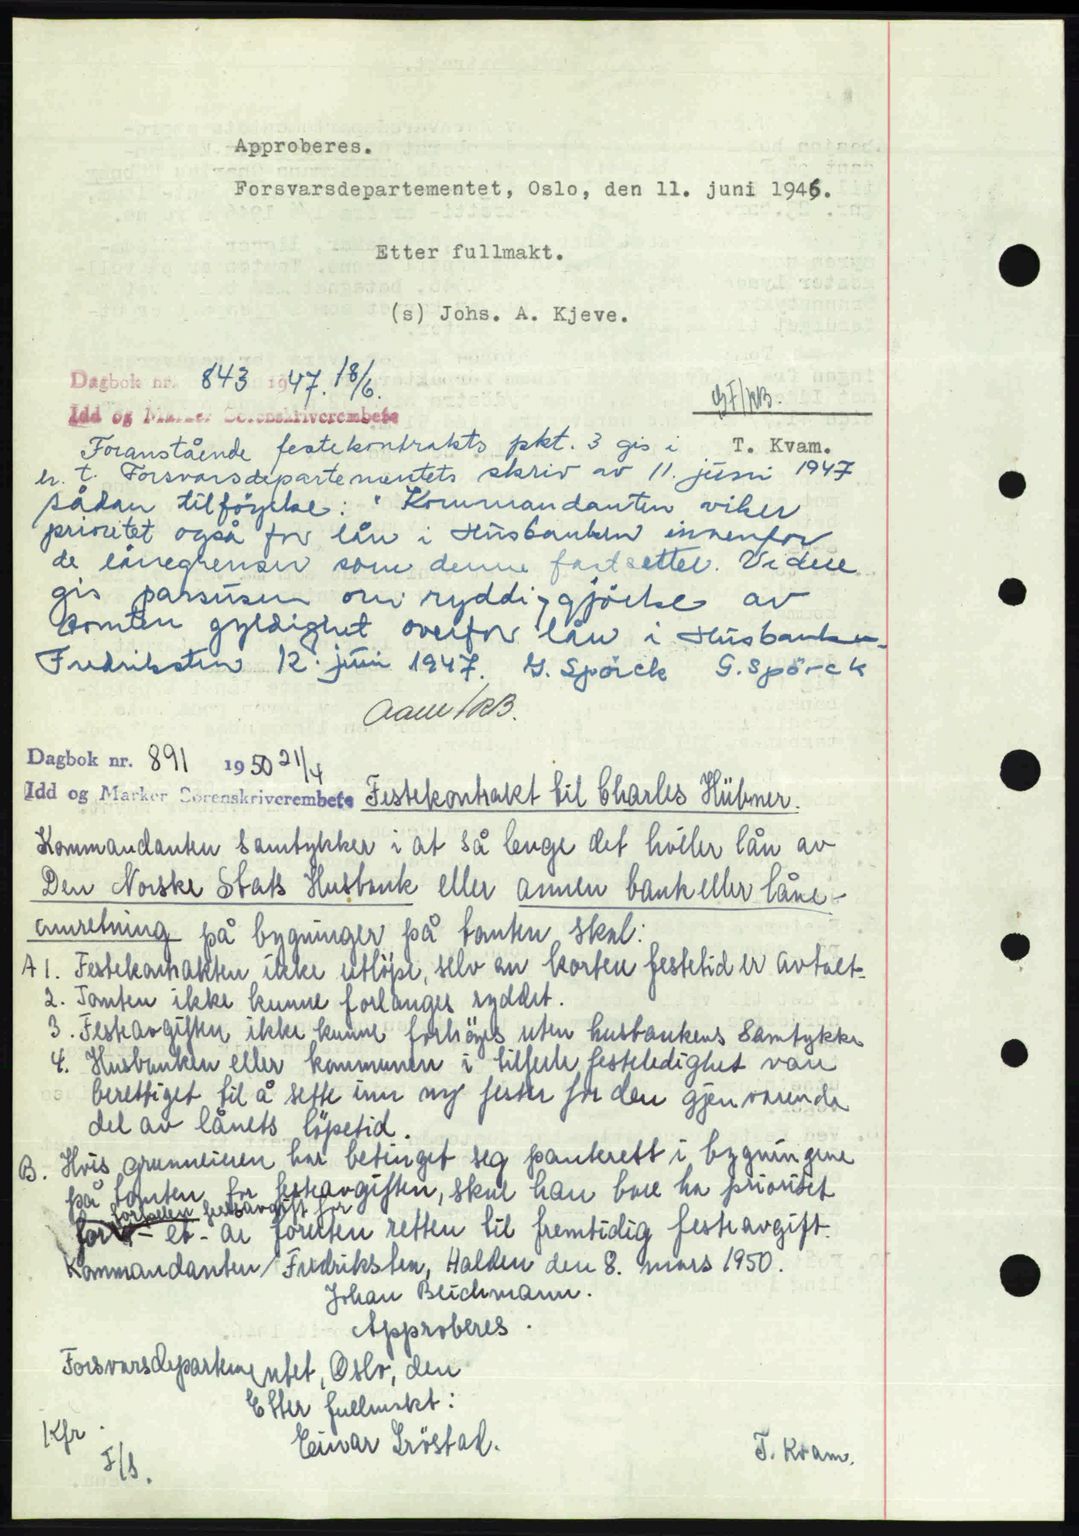 Approberes.
Forsvarsdepartementet, Oslo, den 11. juni 1946.
Etter fullmakt.
(s) Johs. A. Kjeve.
Dagbok nr. 843 1947. 18/6.
Idd og Marker Sorenskriverembete
GF/KB.
T. Kvam.
Foranstående festekontrakts pkt. 3 gis i
h. t. Forsvarsdepartementets skriv av 11. juni 1947
sådan tilföyelse: "Kommandanten viker
prioritet også for lån i Husbanken innenfor
de lånegrenser som denne fastsetter. Videre
gis passusen om ryddiggjörelse av
tomten gyldighet overfor lån i Husbanken
Fredriksten 12. juni 1947. G. Spörck G. Spörck
Aam/KB.
Dagbok nr. 891 1950 21/4
Idd og Marker Sorenskriverembete Festekontrakt til Charles Hübner.
Kommandanten samtykker i at så lenge det hviler lån av
Den Norske Stats Husbank eller annen bank eller låne-
innretning på bygninger på tomten skal:
A 1. Festekontrakten ikke utlöpe, selv om korten festetid er avtalt.
2. Tomten ikke kunne forlanges ryddet.
3. Festeavgiften ikke kunne forhöyes uten husbankens samtykke
4. Husbanken eller kommunen i tilfelle festeledighet være
berettiget til å sette inn ny fester for den gjenværende
del av lånets löpetid.
B. Hvis grunneieren har betinget seg panterett i bygningene
på tomten for festeavgiften, skal han bare ha prioritet
forfallen festeavgift for
for - et - år foruten retten til fremtidig festeavgift.
Kommandanten/Fredriksten, Halden den 8. mars 1950.
Johan Beichmann.
Approberes.
Forsvarsdepartementet, Oslo, den
Etter fullmakt:
Einar Gröstad.
Kfr.
F/S.
T. Kvam.